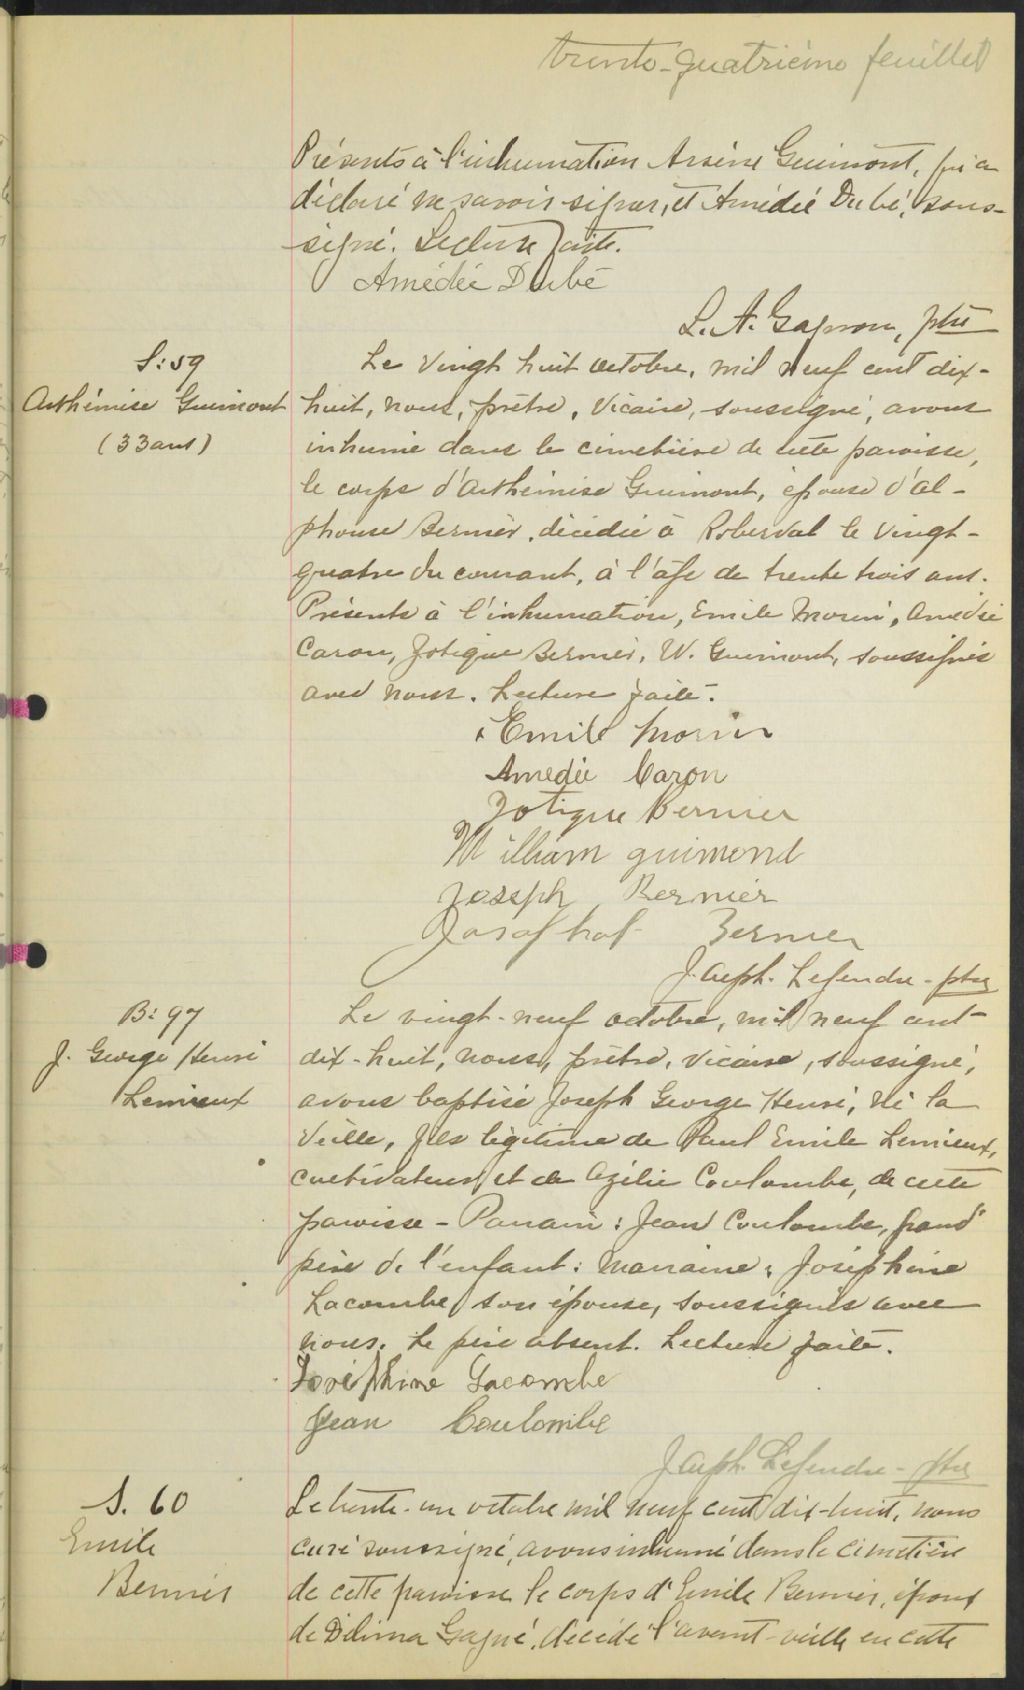 trente-quatrième feuillet
Présents à l'inhumation Arsène Guimont, qui a
déclaré ne savoir signer, et Amédée Dubé, sous-
signé. Lecture faite.
Amédée Dubé
L. A. Gagnon, ptre
S: 59
Arthémise Guimont
(33 ans)
Le vingt huit octobre, mil neuf cent dix-
huit, nous, prêtre, vicaire, soussigné, avons
inhumé dans le cimetière de cette paroisse,
le corps d'Arthémise Guimont, épouse d'Al-
phonse Bernier, décédée à Roberval le vingt-
quatre du courant, à l'âge de trente trois ans.
Présents à l'inhumation, Emile Morin, Amédée
Caron, Zotique Bernier, W. Guimont, soussignés
avec nous. Lecture faite.
Emile Morin
Amedée Caron
Zotique Bernier
William guimond
Joseph Bernier
Josaphat Bernier
J. Alph. Legendre - ptre
B: 97
J. George Henri
Lemieux
Le vingt-neuf octobre, mil neuf cent-
dix-huit, nous, prêtre, vicaire, soussigné,
avons baptisé Joseph George Henri, né la
veille, fils légitime de Paul Emile Lemieux,
cultivateur, et de Azélie Coulombe, de cette
paroisse - Parrain: Jean Coulombe, grand
père de l'enfant: marraine: Joséphine
Lacombe, son épouse, soussignés avec
nous. Le père absent. Lecture faite.
Joséphine Lacombe
Jean Coulombe
J. Alph. Legendre - ptre
S. 60
Emile
Bernier
Le trente-un octobre mil neuf cent dix-huit, nous
curé soussigné, avons inhumé dans le cimetière
de cette paroisse le corps d'Emile Bernier, époux
de Délima Gagné, décédé l'avant-veille en cette